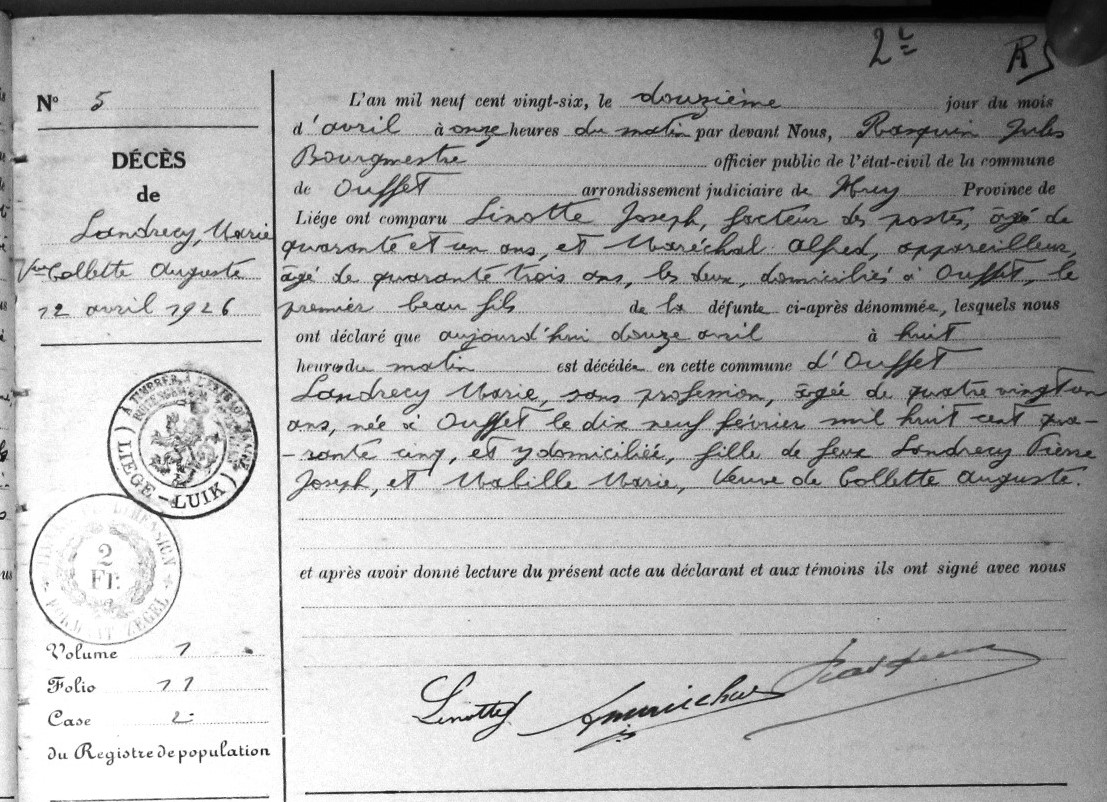 2
R
N° 5
DÉCÈS
de
Landrecy, Marie
Vve Collette Auguste
12 avril 1926
(À TIMBRER À L'EXTRAORDINAIRE
(LIÉGE-LUIK)
2
FR.
ZEGEL
Volume 1
Folio 11
Case 2
du Registre de population
L'an mil neuf cent vingt-six, le douzième jour du mois
d'avril à onze heures du matin par devant Nous, Rasquin Jules
Bourgmestre officier public de l'état-civil de la commune
de Ouffet arrondissement judiciaire de Huy Province de
Liége ont comparu Linotte Joseph, facteur des postes, âgé de
quarante et un ans, et Maréchal Alfred, appareilleur,
âgé de quarante trois ans, les deux domiciliés à Ouffet, le
premier beau fils de la défunte ci-après dénommée, lesquels nous
ont déclaré que aujourd'hui douze avril à huit
heures du matin est décédée en cette commune d'Ouffet
Landrecy Marie, sans profession, âgée de quatre vingt un
ans, née à Ouffet le dix neuf février mil huit cent qua-
-rante cinq, et y domiciliée, fille de feux Landrecy Pierre
Joseph, et Mabille Marie, Veuve de Collette Auguste.
et après avoir donné lecture du présent acte au déclarant et aux témoins ils ont signé avec nous
Linotte